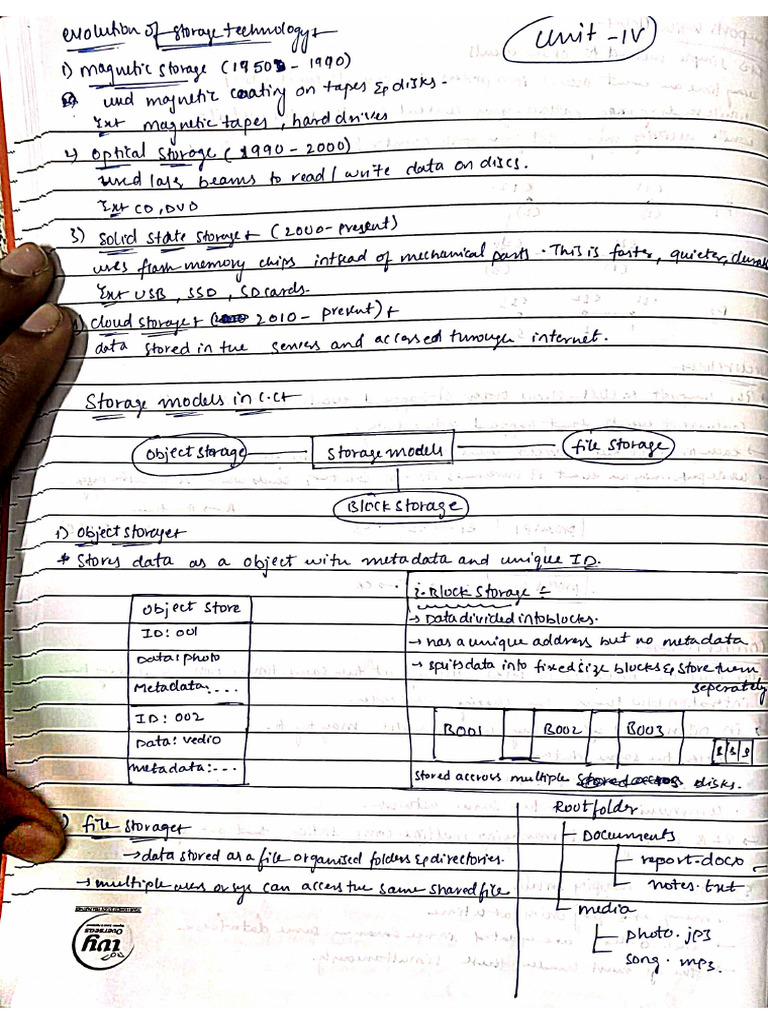 evolution of storage technology :-
Unit - IV
1) magnetic storage (1950s - 1990)
used magnetic coating on tapes & disks.
Ex:- magnetic tapes, hard drives
2) optical storage (1990 - 2000)
used laser beams to read / write data on discs.
Ex:- CD, DVD
3) solid state storage :- (2000 - present)
uses flash memory chips instead of mechanical parts. This is faster, quieter,
Ex:- USB, SSD, SD cards.
cloud storage :- (2010 - present) :-
data stored in the servers and accessed through internet.
Storage models in C.C :-
object storage
storage models
file storage
Block storage
1) object storage :-
* stores data as a object with metadata and unique ID.
object store
ID: 001
Data: photo
Metadata: ...
ID: 002
Data: vedio
metadata: ...
2. Block storage :-
→ Data divided into blocks.
→ has a unique address but no metadata
→ spits data into fixed size blocks & store them
seperately
B001 B002 B003
stored accross multiple disks.
) file storage :-
→ data stored as a file organised folders & directories.
→ multiple uses or sys can access the same shared file
Root folder
Documents
report.docx
notes.txt
media
photo.jp3
song.mp3
ivy
Overseas